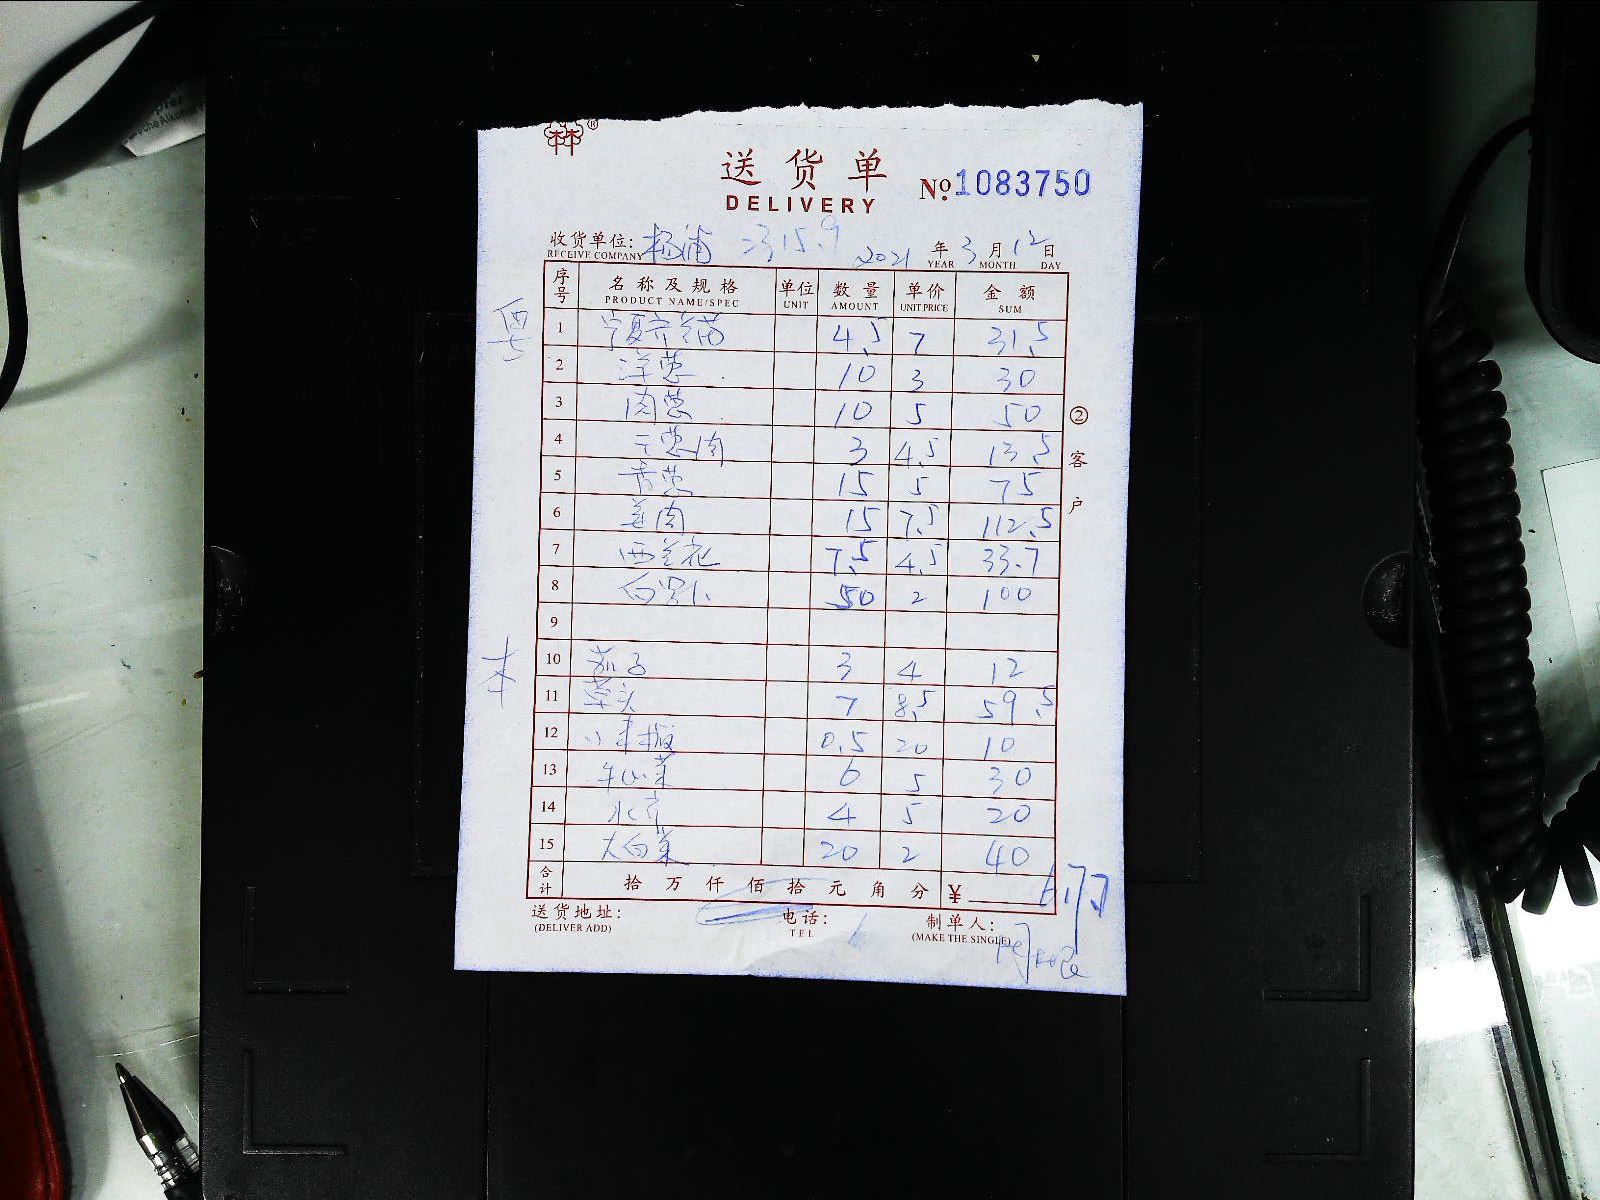 林®
送货单
DELIVERY
№ 1083750
收货单位: 杨浦 315.9 2021年3月12日
RECEIVE COMPANY YEAR MONTH DAY
序号 名称及规格 单位 数量 单价 金额
PRODUCT NAME/SPEC UNIT AMOUNT UNIT PRICE SUM
1 宁夏芥兰苗 4.5 7 31.5
2 洋葱 10 3 30
3 肉葱 10 5 50
4 干葱肉 3 4.5 13.5
5 青葱 15 5 75
6 姜肉 15 7.5 112.5
7 西兰花 7.5 4.5 33.7
8 白罗卜 50 2 100
9
10 茄子 3 4 12
11 草头 7 8.5 59.5
12 小米椒 0.5 20 10
13 牛心菜 6 5 30
14 水芹 4 5 20
15 大白菜 20 2 40
合计 拾万仟佰拾元角分 ¥ 617.7
② 客户
本
送货地址: 电话: 制单人:
(DELIVER ADD) TEL (MAKE THE SINGLE)